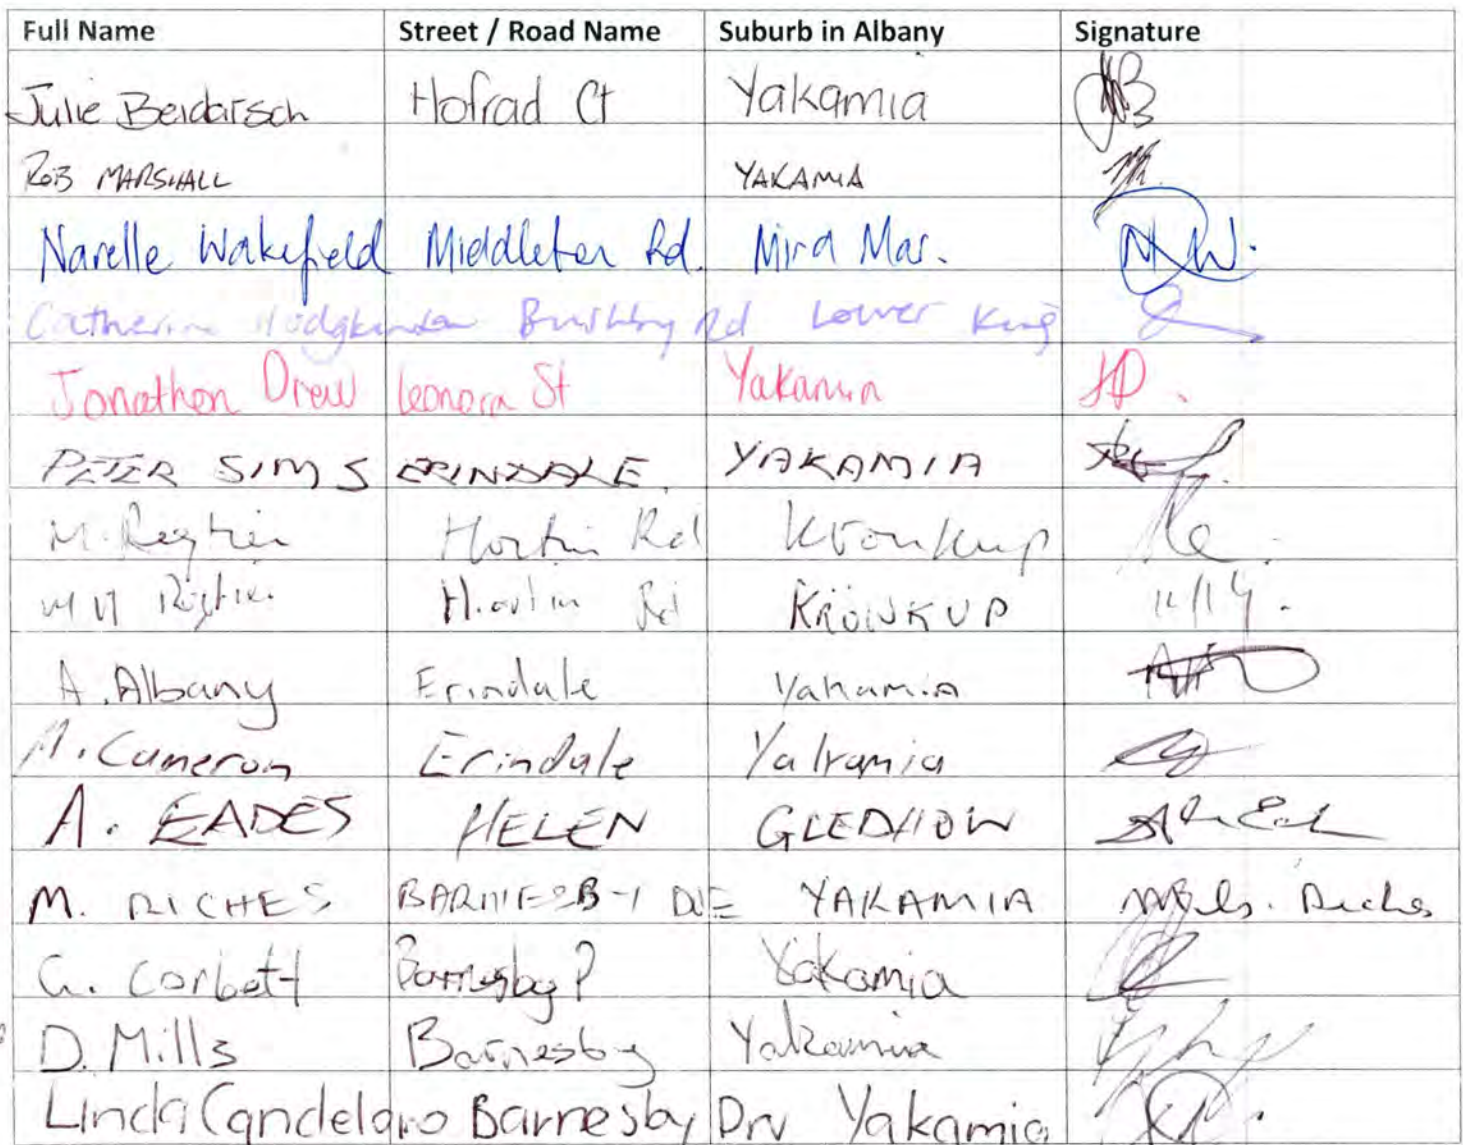 Full Name Street / Road Name Suburb in Albany Signature
Julie Beidatsch Hofrad Ct Yakamia JB
ROB MARSHALL YAKAMIA
Narelle Wakefield Middleton Rd. Mira Mar. NW.
Catherine Hodgkinson Bushby Rd Lower King
Jonathon Drew Leonora St Yakamia JD.
PETER SIMS ERINDALE. YAKAMIA
M. Hortin Rd Kronkup
Hortin Rd KRONKUP
A. Albany Erindale Yakamia
Cameron Erindale Yakamia
A. EADES HELEN GLEDHOW
M. RICHES BARNESBY DVE YAKAMIA Riches
G. Corbett Barnesby Yakamia
D. Mills Barnesby Yakamia
Linda Candeloro Barnesby Drv Yakamia